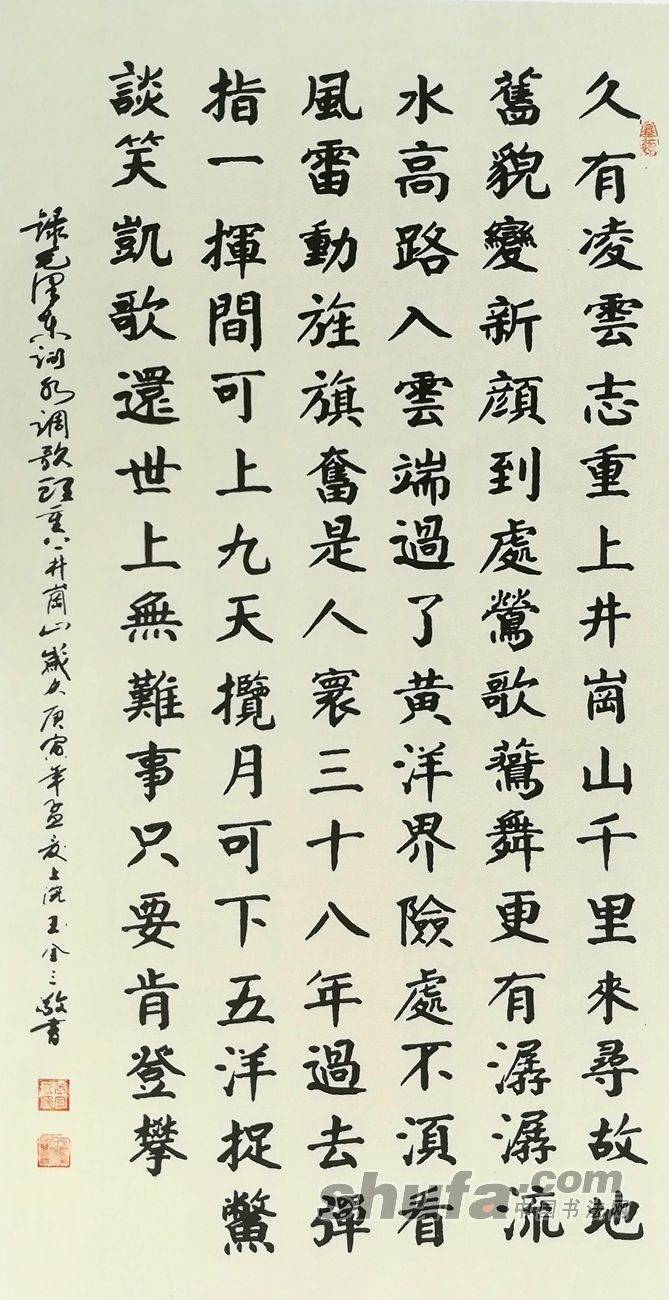 久有凌雲志重上井崗山千里來尋故地
舊貌變新顔到處鶯歌鷰舞更有潺潺流
水高路入雲端過了黄洋界險處不湏看
風雷動旌旗奮是人寰三十八年過去彈
指一揮間可上九天攬月可下五洋捉鱉
談笑凱歌還世上無難事只要肯登攀
錄毛澤东词水调歌頭重上井崗山歲次庚寅年孟夏上浣玉金三敬書
shufa.com
中国书法网